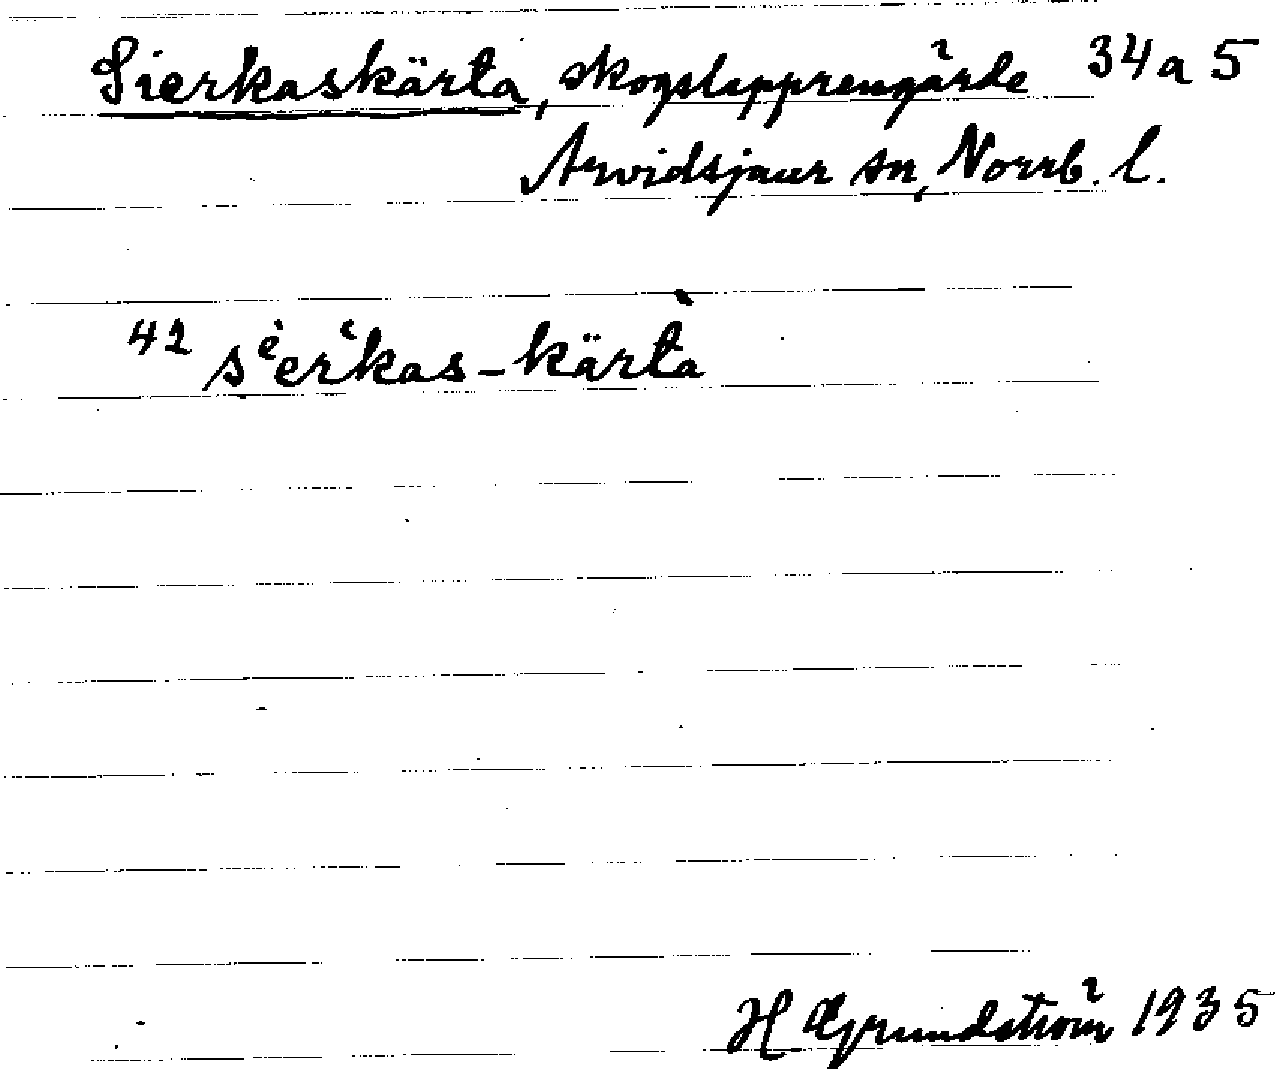 Sierkaskärta, skogslapprengärde 34a 5
Arvidsjaur sn, Norrb. l.
42 sėerʽkas-kärtà
H Grundström 1935